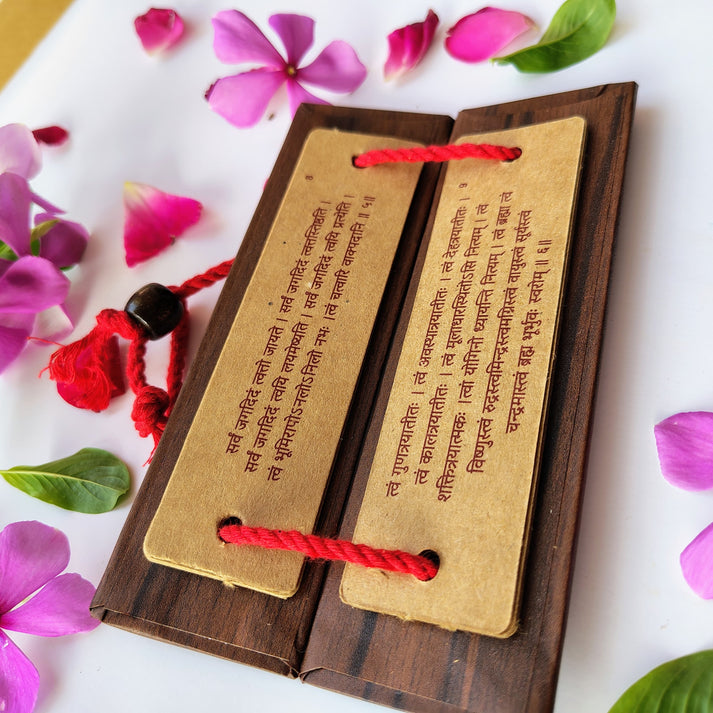 सर्वं जगदिदं त्वत्तो जायते । सर्वं जगदिदं त्वत्तस्तिष्ठति ।
सर्वं जगदिदं त्वयि लयमेष्यति । सर्वं जगदिदं त्वयि प्रत्येति ।
त्वं भूमिरापोऽनलोऽनिलो नभः ।त्वं चत्वारि वाक्पदानि ॥ ५॥
त्वं गुणत्रयातीतः । त्वं अवस्थात्रयातीतः । त्वं देहत्रयातीतः ।
त्वं कालत्रयातीतः । त्वं मूलाधारस्थितोऽसि नित्यम् । त्वं
शक्तित्रयात्मकः ।त्वां योगिनो ध्यायन्ति नित्यम् । त्वं ब्रह्मा त्वं
विष्णुस्त्वं रुद्रस्त्वमिन्द्रस्त्वमग्निस्त्वं वायुस्त्वं सूर्यस्त्वं
चन्द्रमास्त्वं ब्रह्म भूर्भुवः स्वरोम् ॥ ६॥